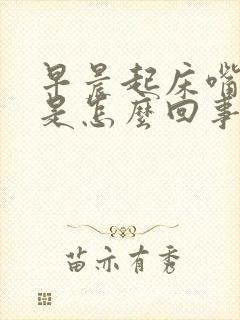 早晨起床嘴
是怎麼回事
苗亦有秀